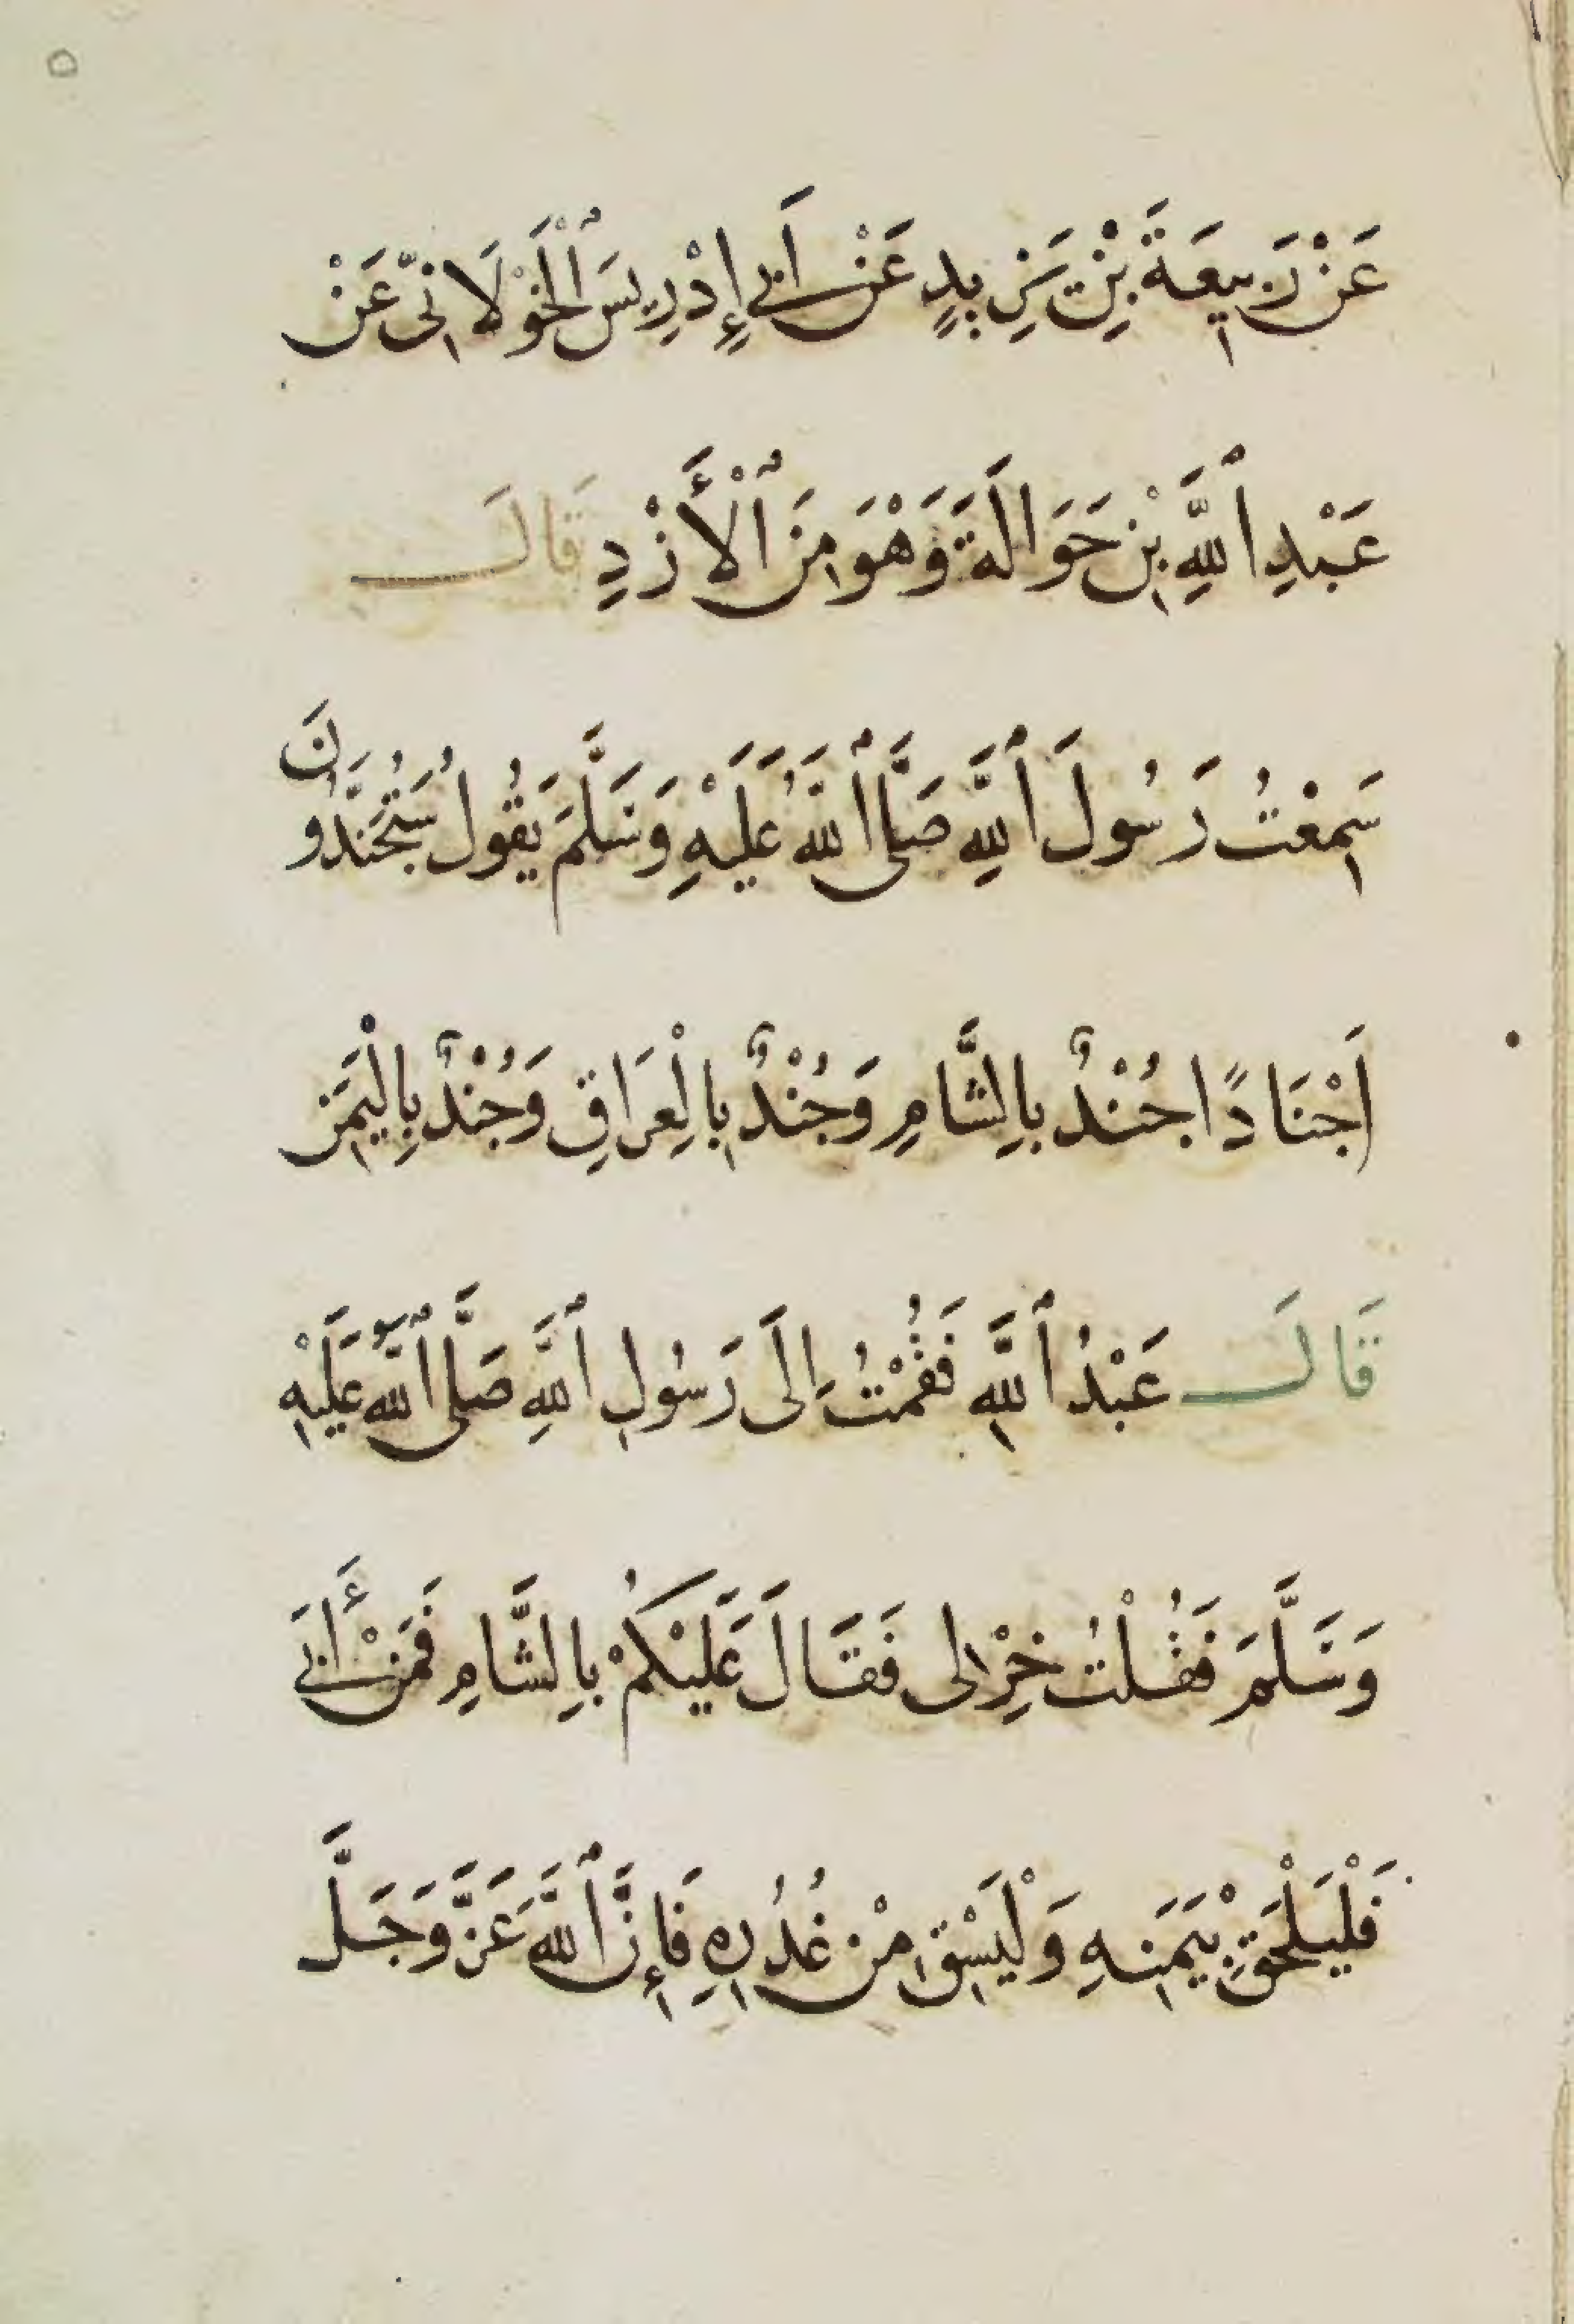 عَنْ رَبِيعَةَ بْنِ يَزِيدٍ عَنْ أَبِي إِدْرِيسَ ٱلْخَوْلَانِىِّ عَنْ
عَبْدِ ٱللَّهِ بْنِ حَوَالَةَ وَهْوَ مِنَ ٱلْأَزْدِ قَالَ
سَمِعْتُ رَسُولَ ٱللَّهِ صَلَّى ٱللَّهُ عَلَيْهِ وَسَلَّمَ يَقُولُ سَتُجَنَّدُونَ
اَجْنَادًا جُنْدٌ بِالشَّامِ وَجُنْدٌ بِالْعِرَاقِ وَجُنْدٌ بِالْيَمَنِ
قَالَ عَبْدُ ٱللَّهِ فَقُمْتُ اِلَى رَسُولِ ٱللَّهِ صَلَّى ٱللَّهُ عَلَيْهِ
وَسَلَّمَ فَقُلْتُ خِرْ لِى فَقَالَ عَلَيْكُمْ بِالشَّامِ فَمَنْ أَبَى
فَلْيَلْحَقْ بِيَمَنِهِ وَلْيَسْقِ مِنْ غُدُرِهِ فَإِنَّ ٱللَّهَ عَزَّ وَجَلَّ